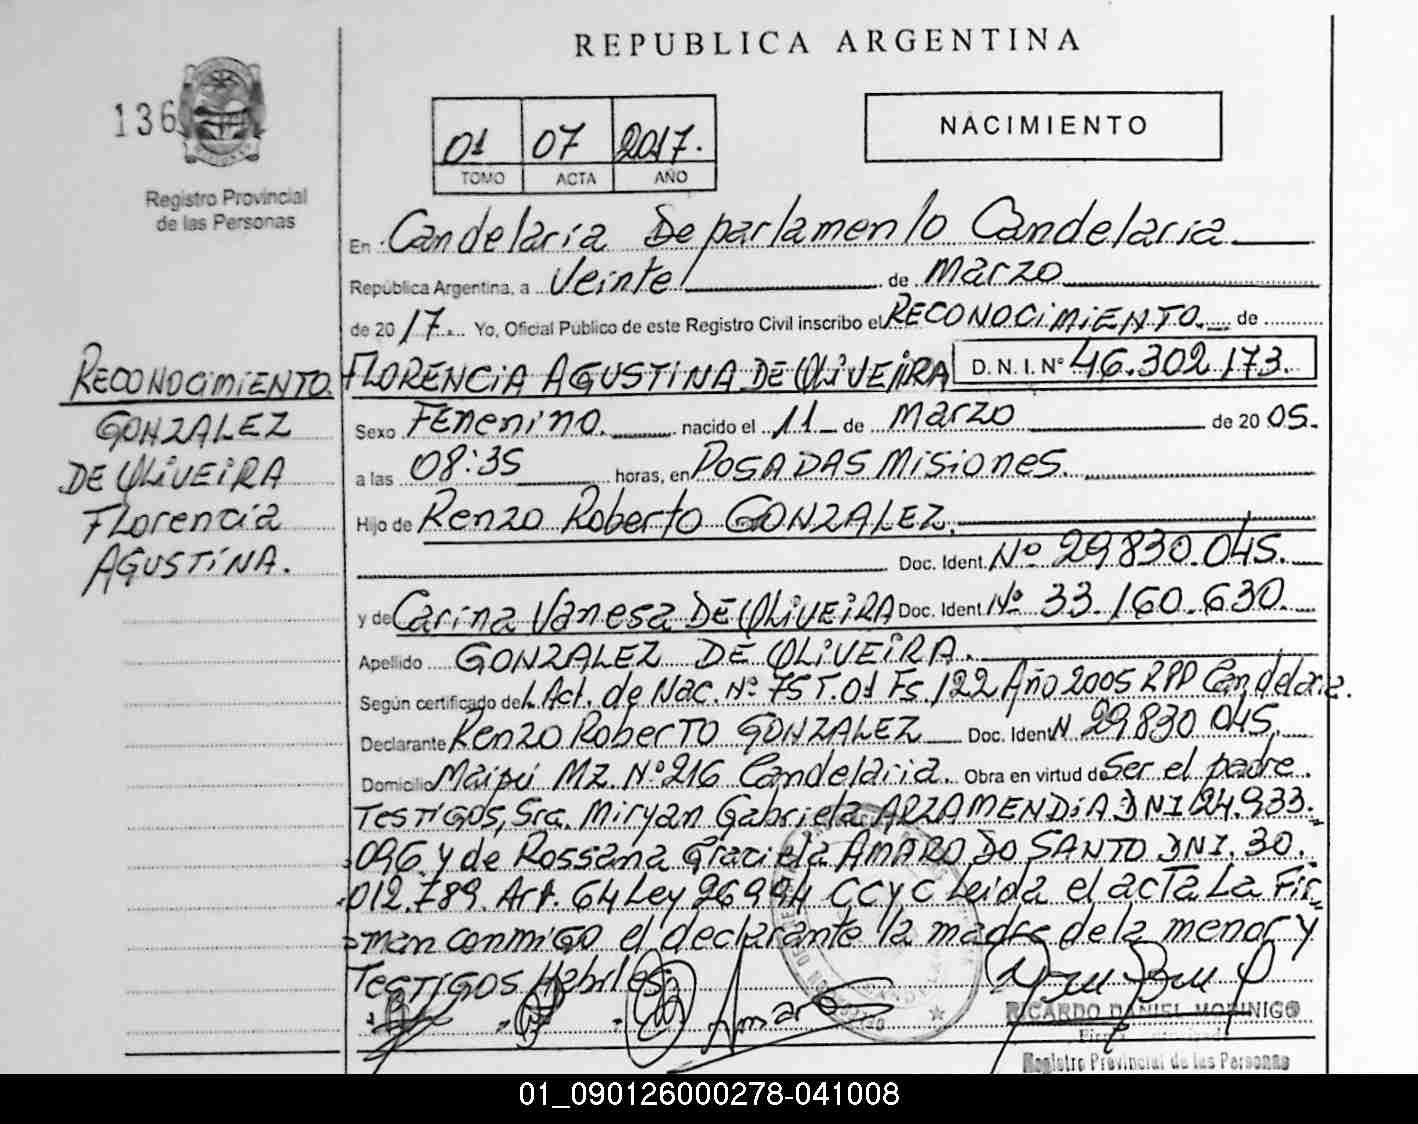 REPUBLICA ARGENTINA
136
Registro Provincial
de las Personas
01 07 2017.
TOMO ACTA AÑO
NACIMIENTO
En Candelaria Departamento Candelaria
República Argentina, a Veinte de Marzo
de 2017. Yo, Oficial Público de este Registro Civil inscribo el RECONOCIMIENTO. de
FLORENCIA AGUSTINA DE OLIVEIRA D.N.I. Nº 46.302.173.
Sexo Femenino. nacido el 11 de Marzo de 2005.
a las 08:35 horas, en POSADAS Misiones.
Hijo de Renzo Roberto GONZALEZ.
Doc. Ident. Nº 29.830.045.
y de Carina Vanesa DE OLIVEIRA Doc. Ident Nº 33.160.630.
Apellido GONZALEZ DE OLIVEIRA.
Según certificado del Act. de Nac. Nº 75 T.01 Fs. 122 Año 2005 RPP Candelaria.
Declarante Renzo Roberto GONZALEZ Doc. Ident N 29830.045.
Domicilio Maipú Mz. Nº 216 Candelaria. Obra en virtud de Ser el padre.
TESTIGOS, Sra. Miryan Gabriela ARZAMENDIA DNI 24.933.
096. y de Rossana Graciela AMARO DO SANTO DNI. 30.
012.789. Art. 64 Ley 26.994 CCYC Leida el acta La Fir
man conmigo el declarante la madre de la menor y
TESTIGOS Habiles
Amaro
RICARDO DANIEL MORINIGO
Registro Provincial de las Personas
RECONOCIMIENTO.
GONZALEZ
DE OLIVEIRA
Florencia
AGUSTINA.
01_090126000278-041008